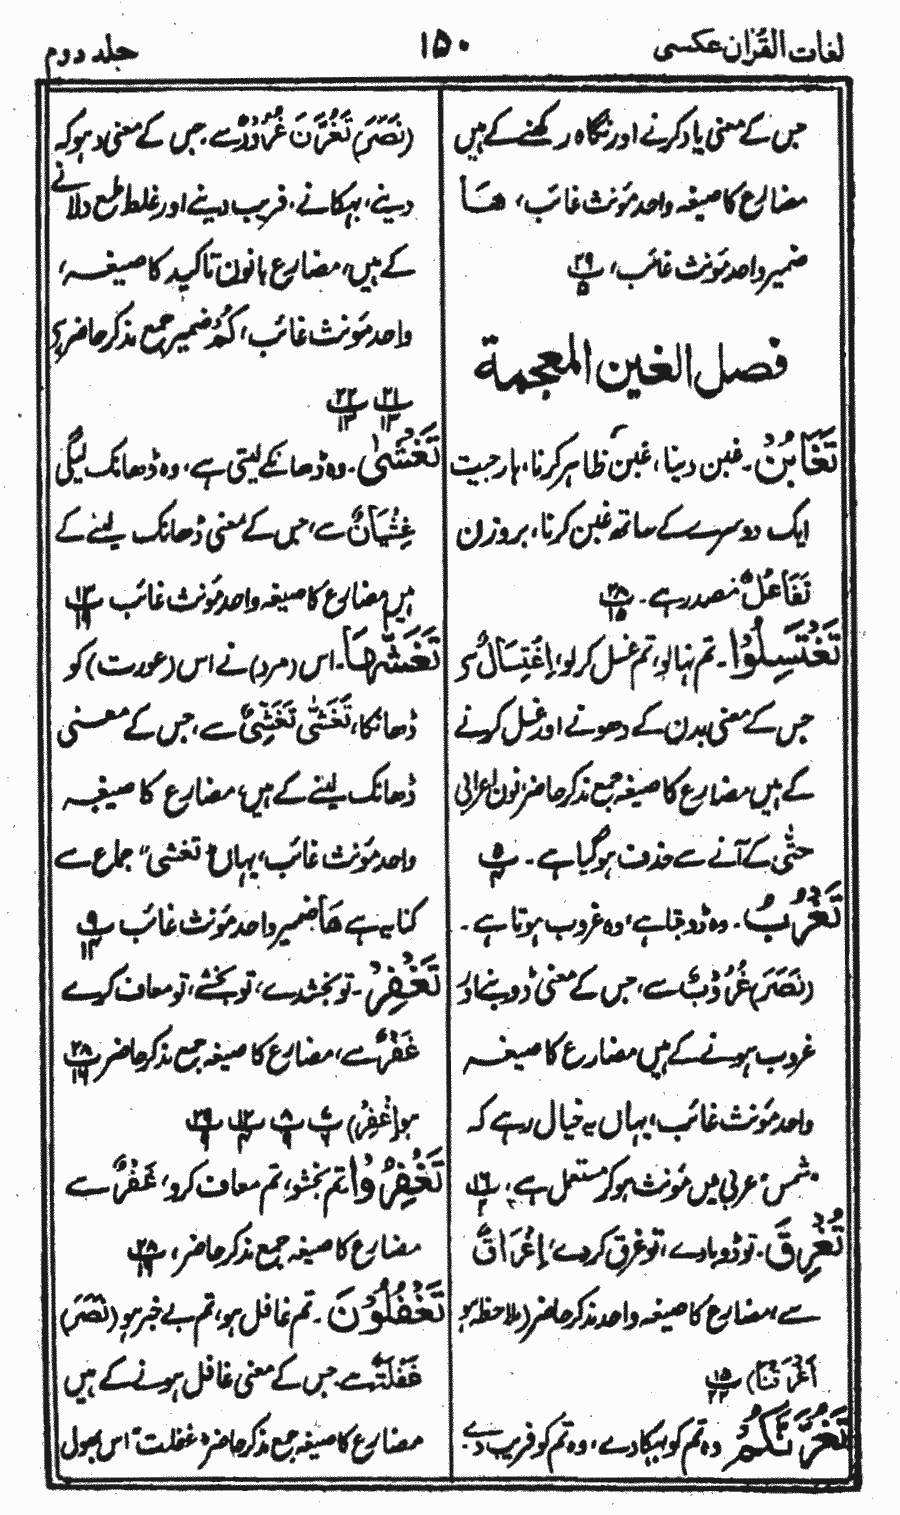 لغات القرآن عکسی
۱۵۰
جلد دوم
جس کے معنی یاد کرنے اور نگاہ رکھنے کے ہیں
مضارع کا صیغہ واحد مؤنث غائب، ھَا
ضمیر واحد مؤنث غائب، ۲۹/۵
فصل الغین المعجمة
تَغَابُنْ۔ غبن دینا، غبن ظاہر کرنا، ہار جیت
ایک دوسرے کے ساتھ غبن کرنا، بروزن
تَفَاعُلٌ مصدر ہے۔ ۲۸/۱۵
تَغْتَسِلُوْا۔ تم نہالو، تم غسل کرلو، اِغْتِسَالٌ سے
جس کے معنی بدن کے دھونے اور غسل کرنے
کے ہیں مضارع کا صیغہ جمع مذکر حاضر، نون اعرابی
حتّٰی کے آنے سے حذف ہوگیا ہے۔ ۵/۴
تَغْرُبُ۔ وہ ڈوبتا ہے، وہ غروب ہوتا ہے۔
(نَصَرَ) غُرُوْبٌ سے، جس کے معنی ڈوبنے اور
غروب ہونے کے ہیں مضارع کا صیغہ
واحد مؤنث غائب، یہاں یہ خیال رہے کہ
"شمس" عربی میں مؤنث ہوکر مستعمل ہے، ۱۶/۲
تُغْرِقَ۔ تو ڈوبا دے، تو غرق کردے، اِغْرَاقٌ
سے، مضارع کا صیغہ واحد مذکر حاضر (ملاحظہ ہو
اَغْرَقْنَا) ۱۵/۲۲
تَغُرَّنَّكُمْ وہ تم کو بہکا دے، وہ تم کو فریب دے۔
(نَصَرَ) تَغُرَّنَ غُرُوْرٌ سے۔ جس کے معنی دھوکہ
دینے، بہکانے، فریب دینے اور غلط طمع دلانے
کے ہیں، مضارع بانون تاکید کا صیغہ،
واحد مؤنث غائب، کُمْ ضمیر جمع مذکر حاضر ہے
۲۱/۱۳ ۲۲/۱۳
تَغْشٰی۔ وہ ڈھانکے لیتی ہے، وہ ڈھانک لیگی
غِشْیَانٌ سے، جس کے معنی ڈھانک لینے کے
ہیں مضارع کا صیغہ واحد مؤنث غائب ۱۳/۱۹
تَغَشّٰهَا۔ اس (مرد) نے اس (عورت) کو
ڈھانکا، تَغَشّٰی تَغَشِّیٌ سے، جس کے معنی
ڈھانک لینے کے ہیں، مضارع کا صیغہ
واحد مؤنث غائب، یہاں "تغشی" جماع سے
کنایہ ہے ھَا ضمیر واحد مؤنث غائب ۹/۱۴
تَغْفِرْ۔ تو بخشدے، تو بخشے، تو معاف کرے
غَفْرٌ سے، مضارع کا صیغہ جمع مذکر حاضر ۲۸/۱۶
ہو اِغْفِرْ) ۶/۷ ۸/۹ ۱۲/۴ ۲۹/۹
تَغْفِرُوْا تم بخشو، تم معاف کرو، غَفْرٌ سے
مضارع کا صیغہ جمع مذکر حاضر، ۲۸/۱۶
تَغْفُلُوْنَ۔ تم غافل ہو، تم بے خبر ہو (نَصَرَ)
غَفْلَتٌ سے۔ جس کے معنی غافل ہونے کے ہیں
مضارع کا صیغہ جمع مذکر حاضر "غفلت" اس بھول